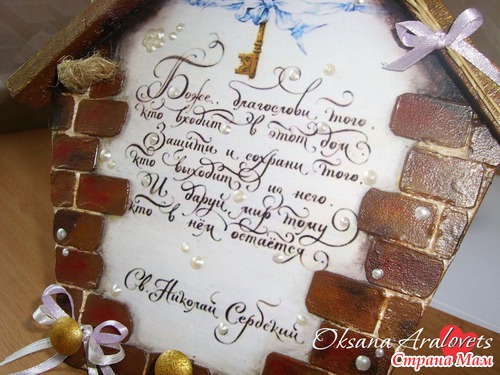 Боже.. благослови того.
кто входит в этот дом.
Защити и сохрани того.
кто выходит из него.
И даруй мир тому
кто в нём остаётся
Св. Николай Сербский
Oksana Aralovets
Страна Мам